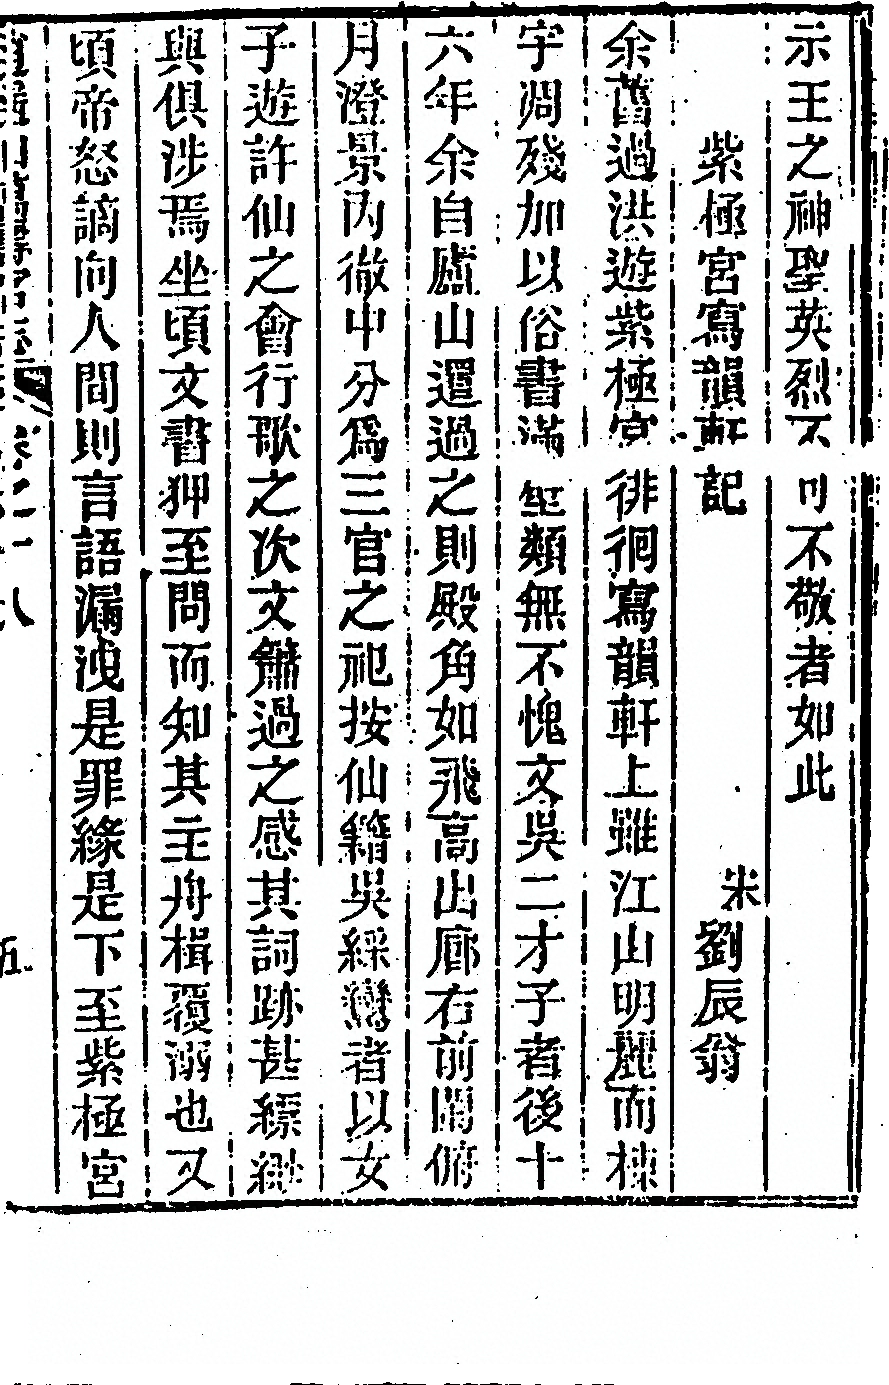 示王之神聖英烈不可不敬者如此
紫極宮寫韻軒記 宋劉辰翁
余舊過洪遊紫極宮徘徊寫韻軒上雖江山明麗而棟
宇凋殘加以俗書滿壁類無不愧文吳二才子者後十
六年余自廬山還過之則殿角如飛高出廊右前閣俯
月澄景內徹中分爲三官之祀按仙籍吳綵鸞者以女
子遊許仙之會行歌之次文簫過之感其詞跡甚縹緲
與俱涉焉坐頃文書狎至問而知其主舟楫覆溺也又
頃帝怒謫向人間則言語漏洩是罪緣是下至紫極宮
卷之一
五